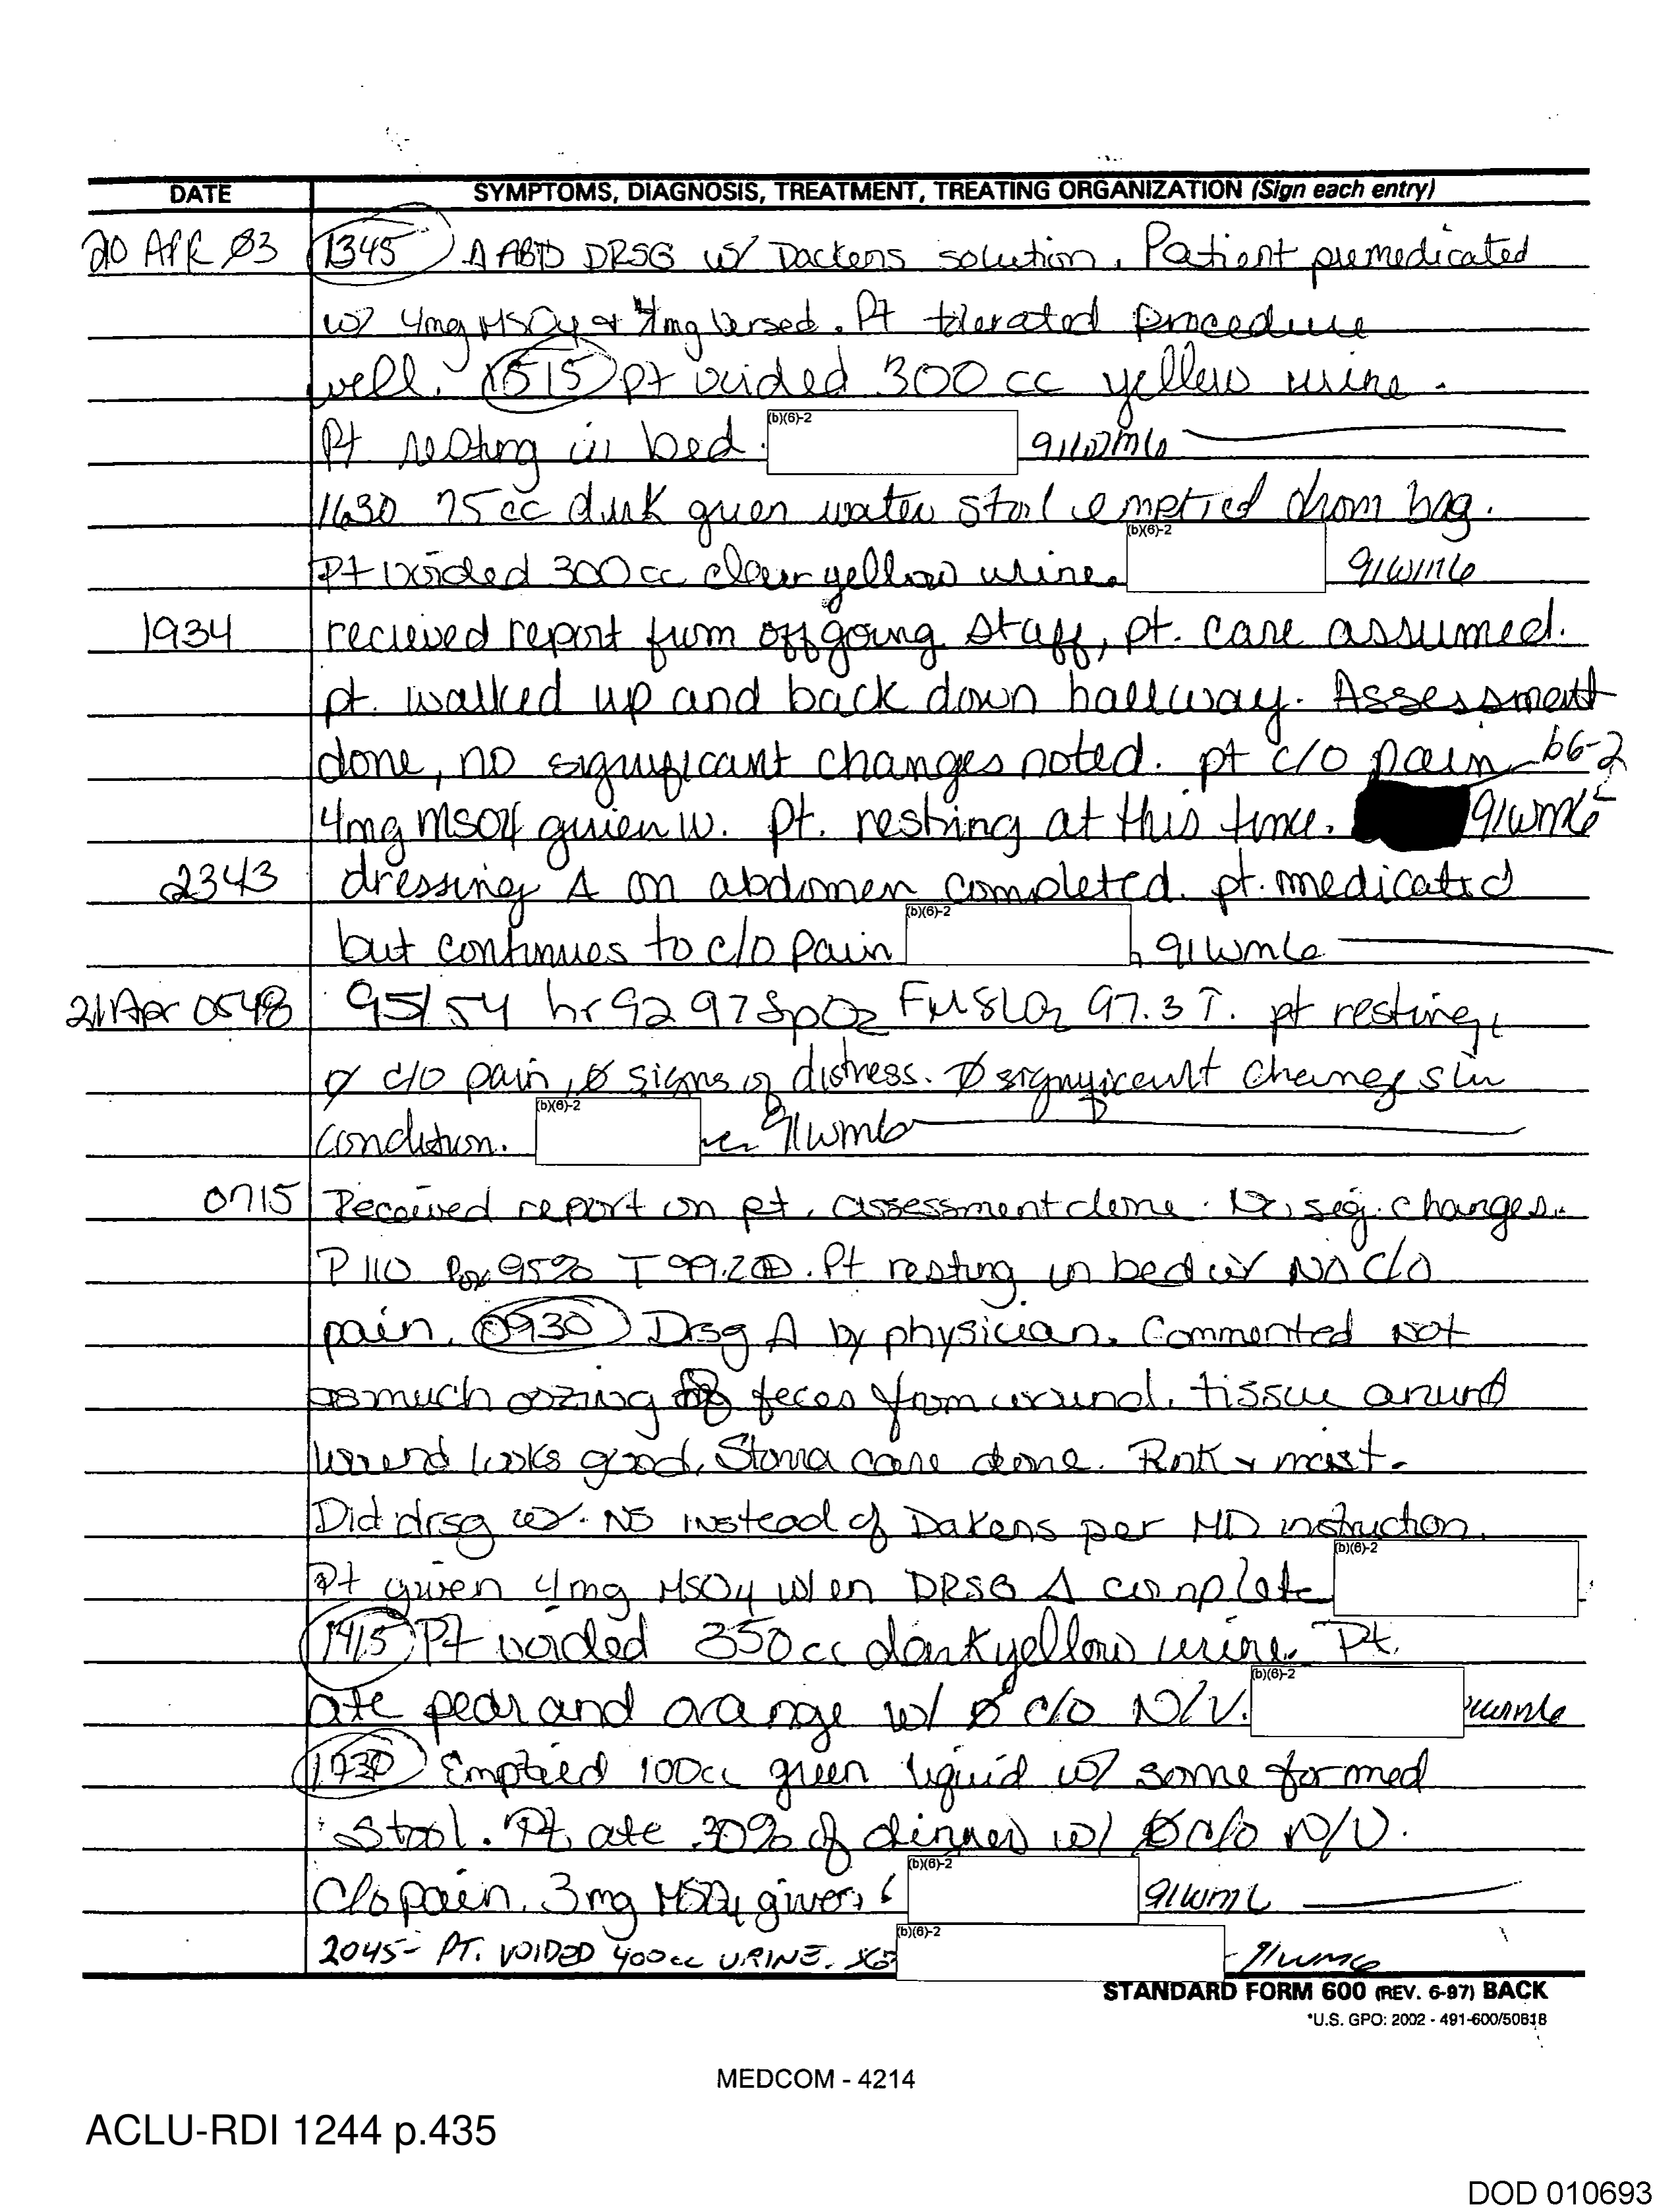 DATE SYMPTOMS, DIAGNOSIS, TREATMENT, TREATING ORGANIZATION (Sign each entry)
20 APR 03 1345 Δ ABD DRSG w/ Dackens solution. Patient premedicated
w/ 4mg MSO4 & mg Versed. Pt tolerated procedure
well. 1515 pt voided 300 cc yellow urine.
Pt resting in bed. (b)(6)-2 91WM6
1630 75cc dark green water stool emptied from bag.
(b)(6)-2
Pt voided 300cc clear yellow urine. 91WM6
1934 recieved report from offgoing staff, pt. care assumed.
pt. walked up and back down hallway. Assessment
done, no significant changes noted. pt c/o pain b6-2
4mg MSO4 given IV. pt. resting at this time. 91WM6
2343 dressing Δ on abdomen completed. pt. medicated
but continues to c/o pain (b)(6)-2 91WM6
21 Apr 0548 95/54 hr 92 97 SpO2 FM 8LO2 97.3 T. pt resting,
Ø c/o pain, Ø signs of distress. Ø significant changes in
condition. (b)(6)-2 91WM6
0715 Received report on pt, assessment done. No sig. changes.
P 110 Pox 95% T 99.2 . Pt resting in bed w/ No c/o
pain. 0930 Drsg Δ by physician. Commented not
as much oozing of feces from wound. tissue around
wound looks good. Stoma care done. Pink & moist.
Did drsg w/ NS instead of Dakens per MD instruction.
Pt given 4mg MSO4 when DRSG Δ complete (b)(6)-2
1415 Pt voided 350cc dark yellow urine. Pt.
ate pear and orange w/ Ø c/o N/V. (b)(6)-2 91WM6
1730 Emptied 100cc green liquid w/ some formed
stool. Pt ate 30% of dinner w/ Ø c/o N/V.
C/o pain. 3mg MSO4 given (b)(6)-2 91WM6
2045- PT. VOIDED 400cc URINE. (b)(6)-2 - 91WM6
STANDARD FORM 600 (REV. 6-97) BACK
*U.S. GPO: 2002 - 491-600/50618
MEDCOM - 4214
ACLU-RDI 1244 p.435
DOD 010693